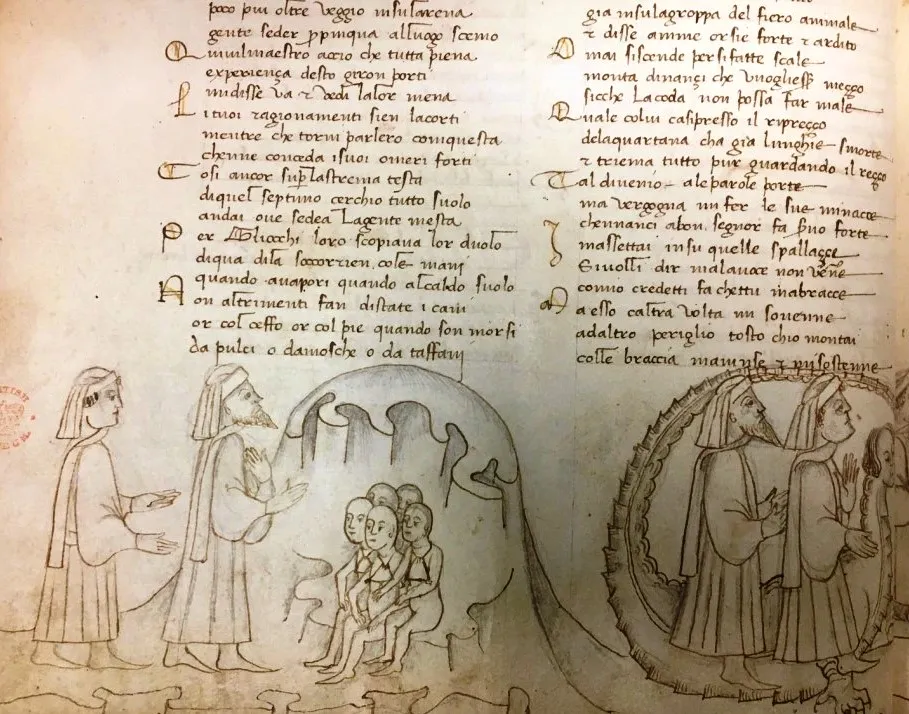 poco piu oltre veggio insularena
gente seder ppinqua alluogo scemo
Quivilmaestro accio che tutta piena
experiença desto giron porti
mi disse va & vedi lalor mena
Li tuoi ragionamenti sien lacorti
mentre che torni parlero conquesta
chenne conceda isuoi omeri forti
Cosi ancor su plastrema testa
diquel septimo cerchio tutto suolo
andai ove sedea lagente mesta
Per gliocchi loro scopiava lor duolo
diqua dila soccorrien cole mani
quando avapori quando alcaldo suolo
Non altrimenti fan distate i cani
or col ceffo or col pie quando son morsi
da pulci o damosche o da taffani
gia insulagroppa del fiero animale
& disse amme or sie forte & ardito
Omai siscende persifatte scale
monta dinançi che vogliess meçço
sicche lacoda non possa far male
Quale colui casipresso il ripreçço
delaquartana cha gia lunghie smorte
& triema tutto pur guardando il reçço
Tal divenio aleparole porte
ma vergogna mi fer le sue minacce
chennanci abon segnor fa suo forte
I massettai insu quelle spallacçe
Sivolli dir malavoce non venne
comio credetti fa chettu mabracce
Ma esso caltra volta mi sovenne
adaltro periglio tosto chio montai
colle braccia mavinse & misostenne